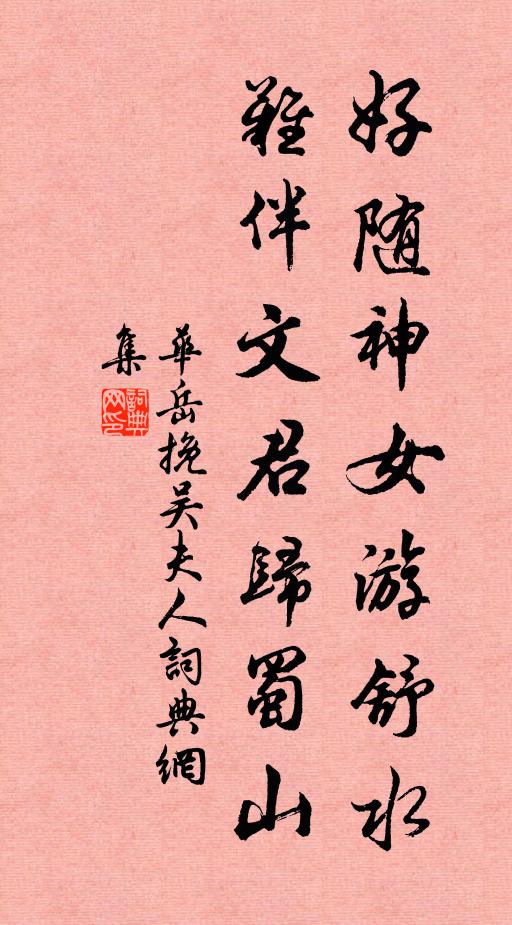 好随神女游舒水
難伴文君歸蜀山
華岳挽吴夫人詞典網
集
詞典
网印